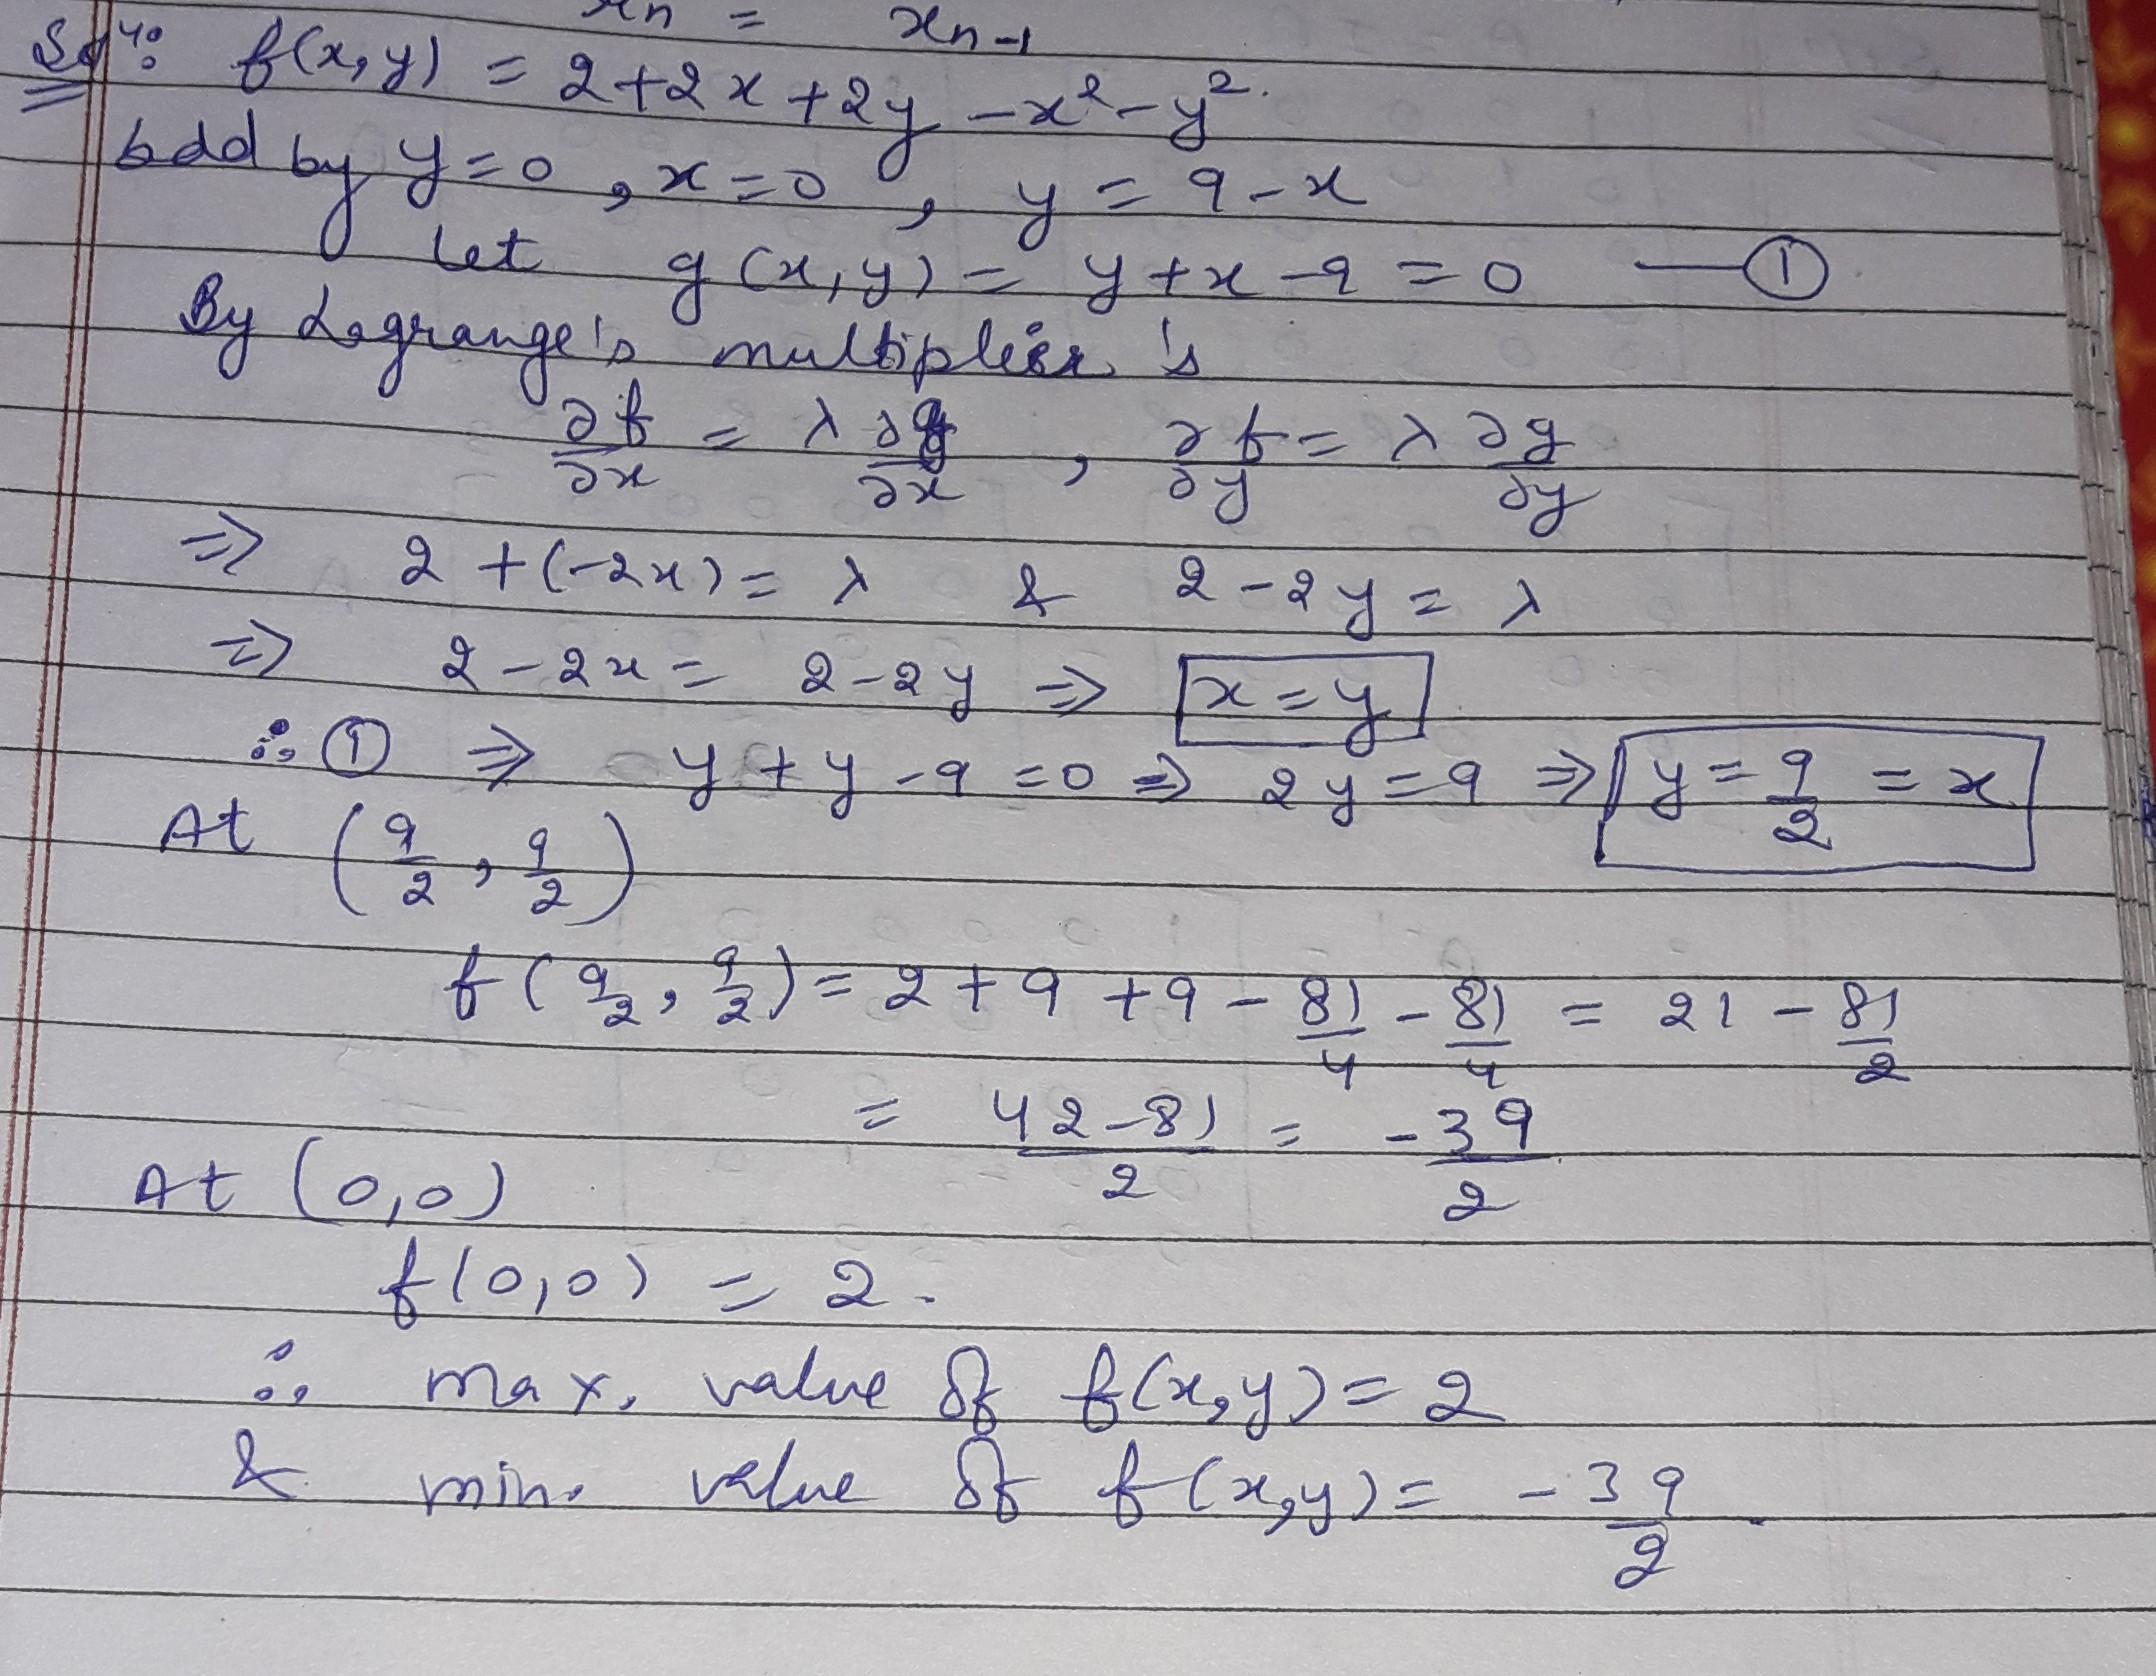 xn = xn-1
Sol4: f(x,y) = 2+2x+2y-x²-y².
bdd by y=0, x=0, y=9-x
Let g(x,y) = y+x-9=0 —①
By Lagrange's multiplier's
∂f/∂x = λ ∂g/∂x , ∂f/∂y = λ ∂g/∂y
⇒ 2+(-2x) = λ & 2-2y = λ
⇒ 2-2x = 2-2y ⇒ x=y
∴ ① ⇒ y+y-9=0 ⇒ 2y=9 ⇒ y=9/2=x
At (9/2, 9/2)
f(9/2, 9/2) = 2+9+9-81/4-81/4 = 21-81/2
= 42-81/2 = -39/2
At (0,0)
f(0,0) = 2.
∴ max. value of f(x,y) = 2
& min. value of f(x,y) = -39/2.